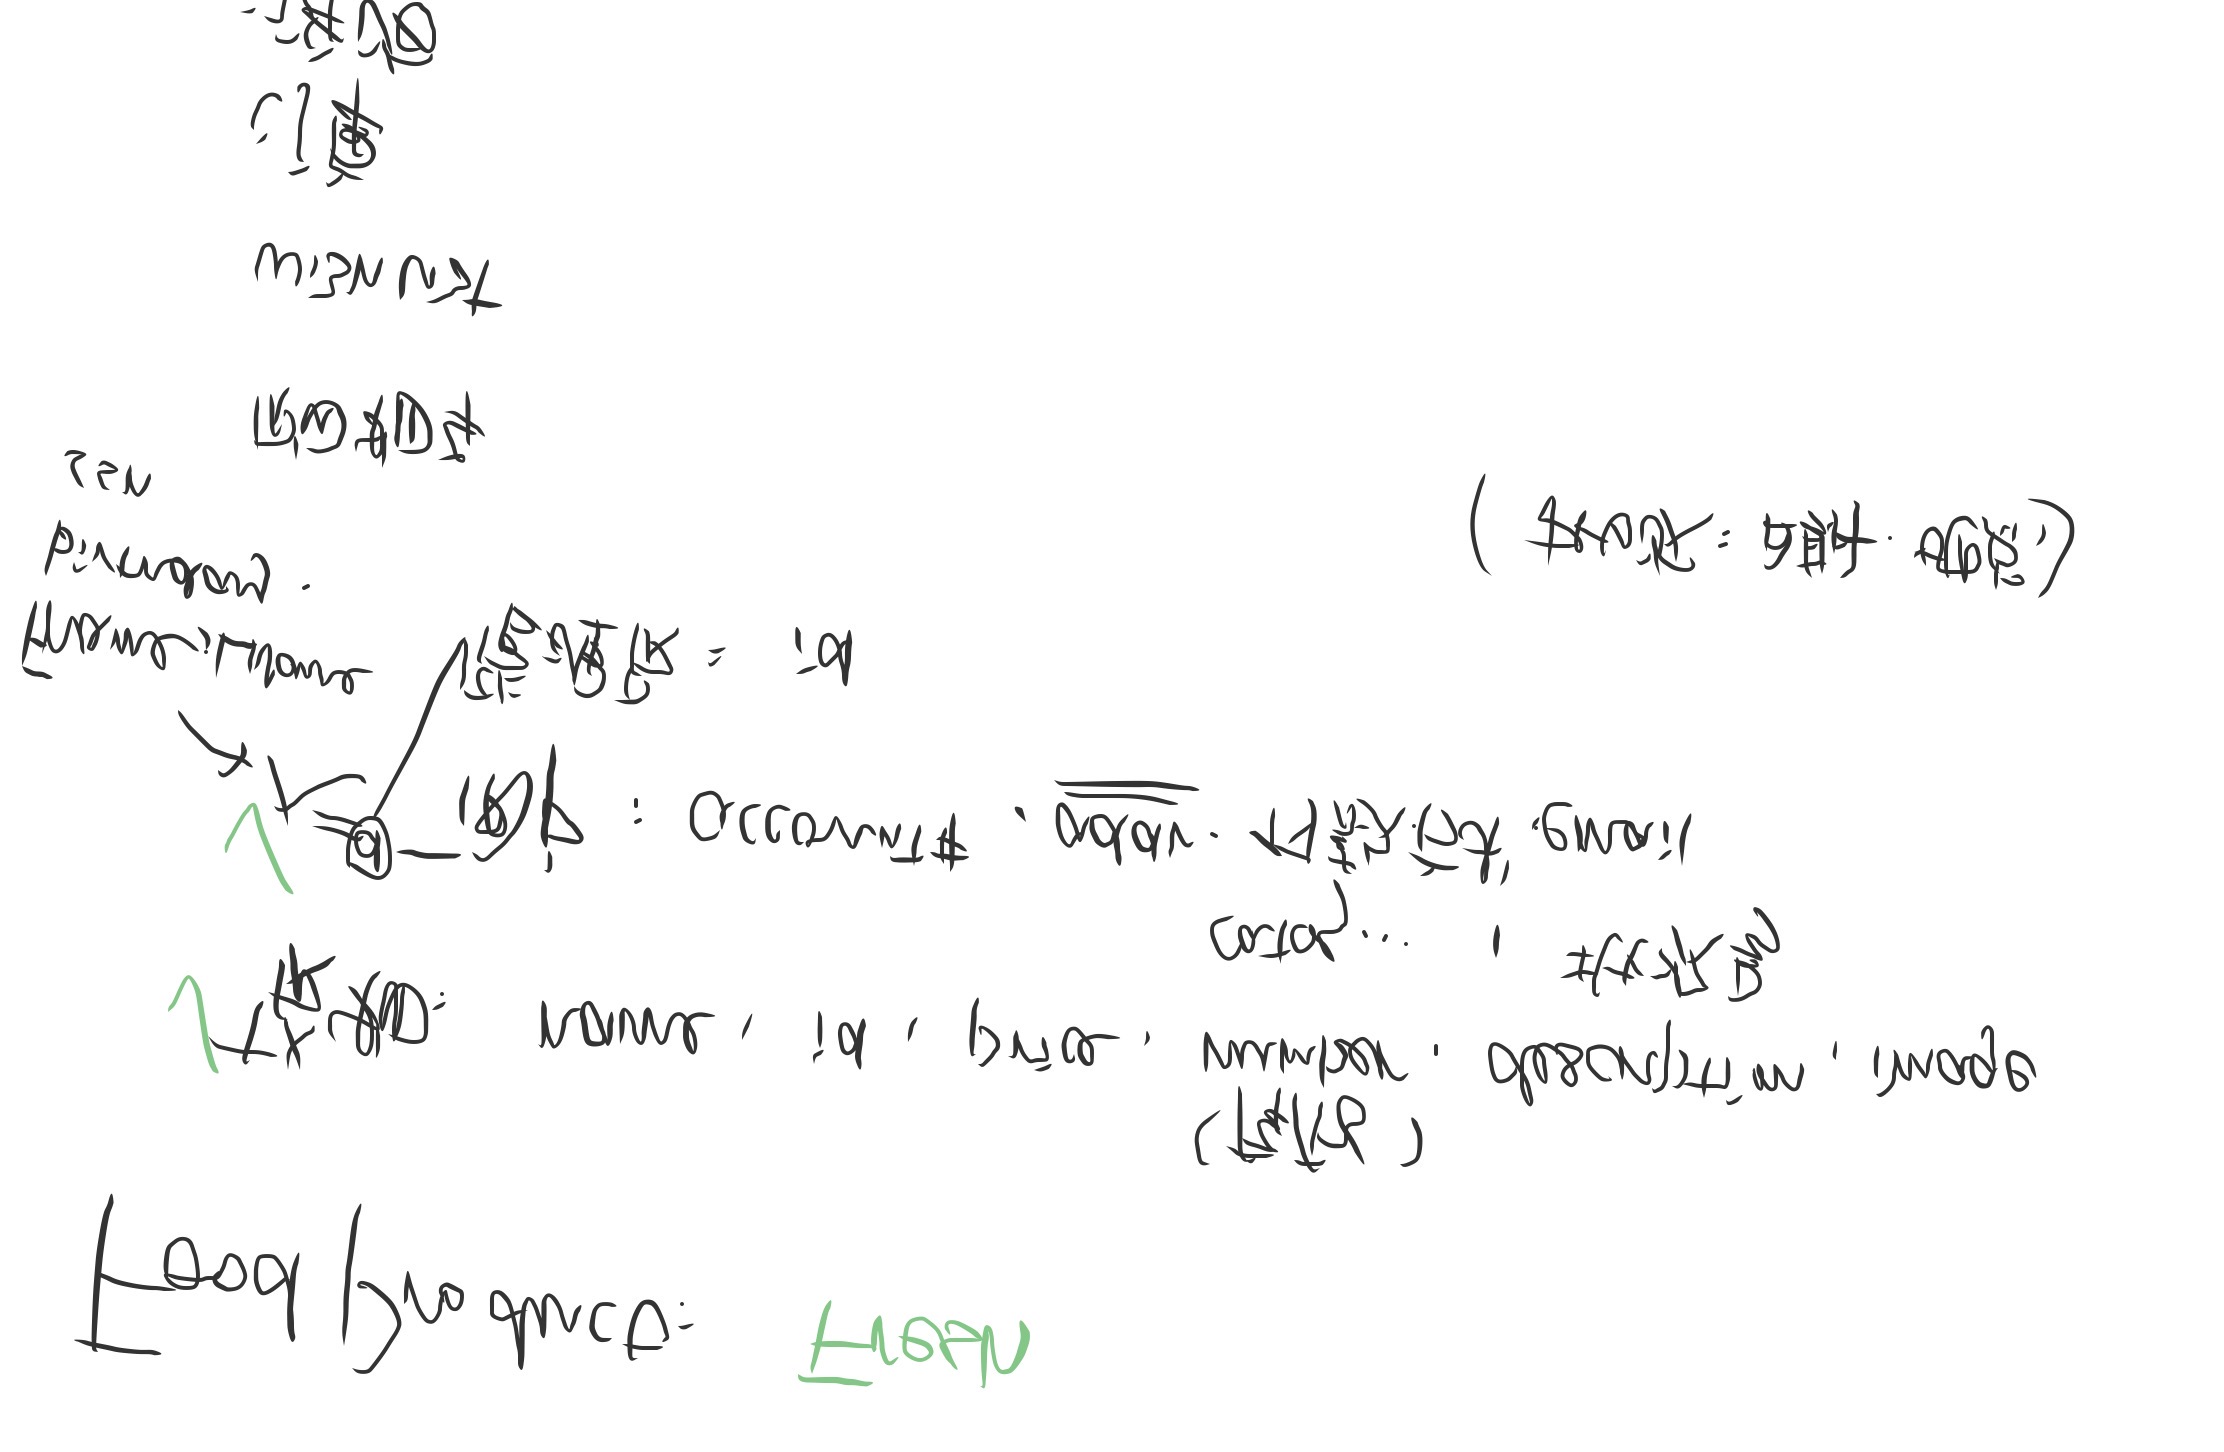 Food Product: Fresh
(库存)
货物: name、id、price、number、description、image
catag... , 批次号
人 d 用户: account#、addr. 付款方式.email
管理员: id
Fname, LName
birthday.
ssn
(批次: 日期. 地点)
购物车
wishlist
订单
评论